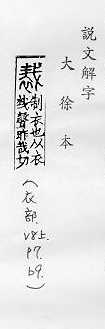 説文解字
大徐本
裁 制衣也从衣
𢦏聲昨哉切
（衣部．V8上．P7．b9．）